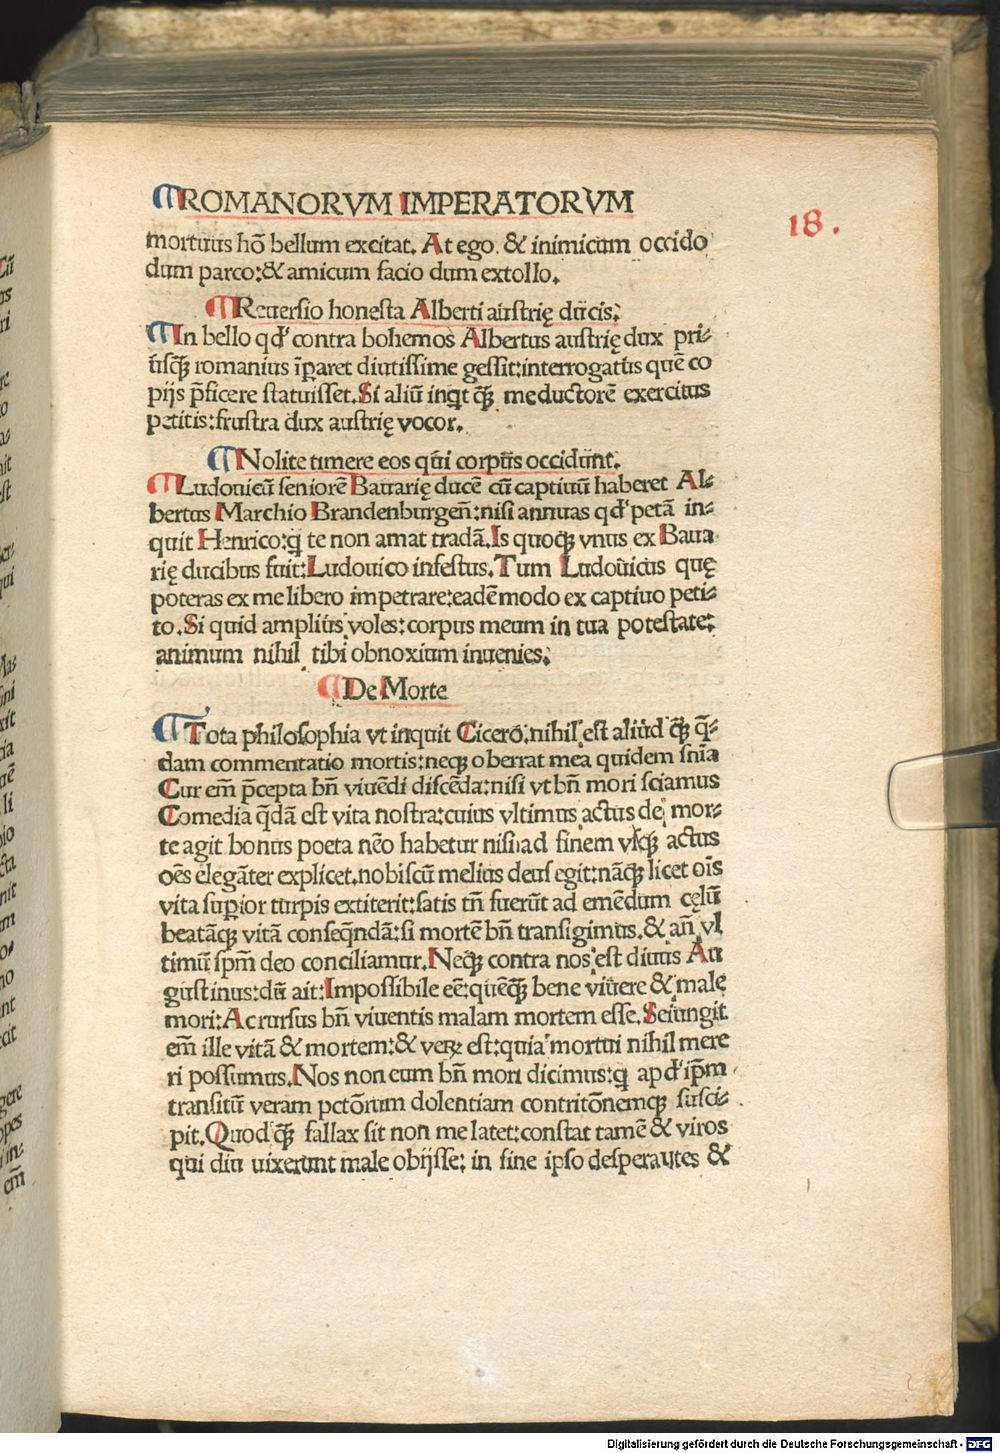 ROMANORVM IMPERATORVM
18.
mortuus hō bellum excitat. At ego. & inimicum occido
dum parco:& amicum facio dum extollo.
Reuersio honesta Alberti austrię ducis;
In bello qd' contra bohemos Albertus austrię dux pri⸗
usqꝫ romanius īparet diutissime gessit:interrogatus quē co
pijs p̄ficere statuisset. Si aliū inqt qꝫ me ductorē exercitus
petitis:frustra dux austrię vocor.
Nolite timere eos qui corpus occidunt.
Ludouicū seniorē Bauarię ducē cū captiuū haberet Al⸗
bertus Marchio Brandenburgeñ:nisi annuas qd' petā in⸗
quit Henrico:q te non amat tradā. Is quoqꝫ vnus ex Baua
rię ducibus fuit:Ludouico infestus. Tum Ludouicus quę
poteras ex me libero impetrare:eadē modo ex captiuo peti⸗
to. Si quid amplius voles:corpus meum in tua potestate:
animum nihil tibi obnoxium inuenies.
De Morte
Tota philosophia vt inquit Cicero:nihil est aliud qꝫ q̄⸗
dam commentatio mortis:neqꝫ oberrat mea quidem sn̄ia
Cur em̄ p̄cepta bn̄ viuēdi discēda:nisi vt bn̄ mori sciamus
Comedia q̄dā est vita nostra:cuius vltimus actus de mor⸗
te agit bonus poeta nēo habetur nisi ad finem vsqꝫ actus
oēs elegāter explicet. nobiscū melius deus egit:nāqꝫ licet oīs
vita supior turpis extiterit:satis tn̄ fuerūt ad emēdum cęlū
beatāqꝫ vitā conseq̄ndā:si mortē bn̄ transigimus. & añ vl
timū spm̄ deo conciliamur. Neqꝫ contra nos est diuus Au
gustinus:dū ait:Impossibile eē:quēqꝫ bene viuere & male
mori: Ac rursus bn̄ viuentis malam mortem esse. Seiungit
em̄ ille vitā & mortem:& veꝝ est:quia mortui nihil mere
ri possumus. Nos non eum bn̄ mori dicimus:q apd' ip̄m
transitū veram pctōrum dolentiam contritōnemqꝫ susci⸗
pit. Quod qꝫ fallax sit non me latet:constat tamē & viros
qui diu uixerunt male obijsse: in fine ipso desperantes &
Digitalisierung gefördert durch die Deutsche Forschungsgemeinschaft - DFG